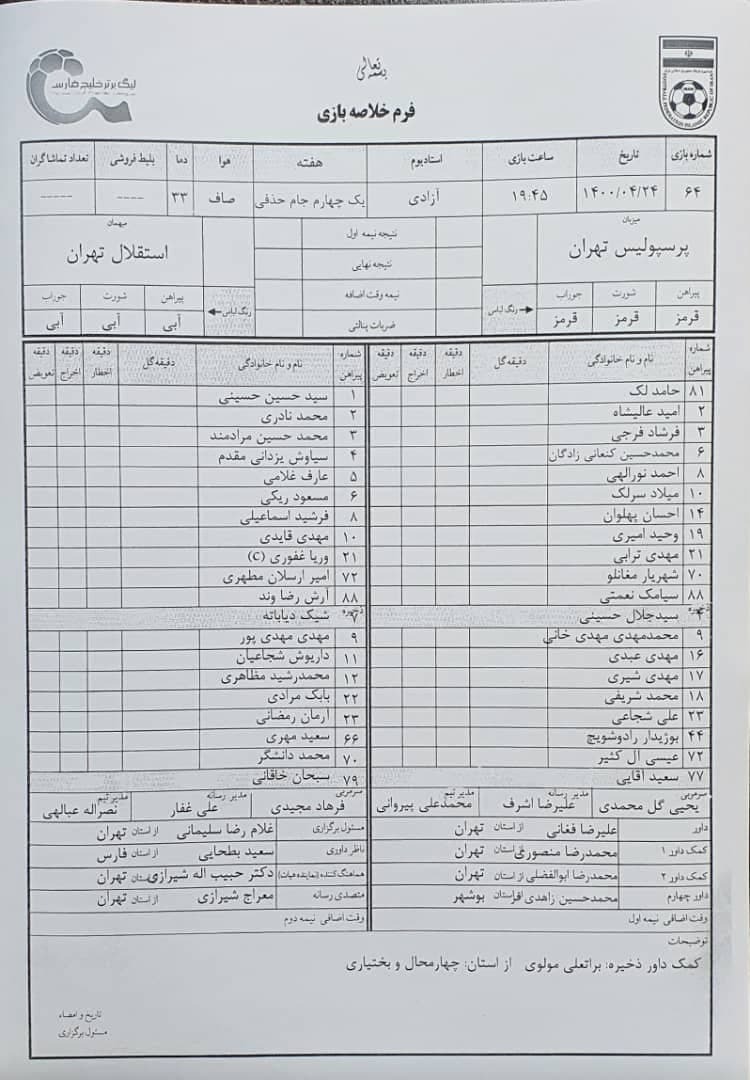 بسمه تعالی
لیگ برتر خلیج فارس
فرم خلاصه بازی
شماره بازی تاریخ ساعت بازی استادیوم هفته هوا دما بلیط فروشی تعداد تماشاگران
۶۴ ۱۴۰۰/۰۴/۲۴ ۱۹:۴۵ آزادی یک چهارم جام حذفی صاف ۳۳ ---- -----
میزبان
پرسپولیس تهران
پیراهن شورت جوراب
قرمز قرمز قرمز
رنگ لباس
نتیجه نیمه اول
نتیجه نهایی
نیمه وقت اضافه
ضربات پنالتی
میهمان
استقلال تهران
رنگ لباس
پیراهن شورت جوراب
آبی آبی آبی
شماره پیراهن نام و نام خانوادگی دقیقه گل دقیقه اخطار دقیقه اخراج دقیقه تعویض
۸۱ حامد لک
۲ امید عالیشاه
۳ فرشاد فرجی
۶ محمدحسین کنعانی زادگان
۸ احمد نورالهی
۱۰ میلاد سرلک
۱۴ احسان پهلوان
۱۹ وحید امیری
۲۱ مهدی ترابی
۷۰ شهریار مغانلو
۸۸ سیامک نعمتی
ذخیره
۴ سیدجلال حسینی
۹ محمدمهدی مهدی خانی
۱۶ مهدی عبدی
۱۷ مهدی شیری
۱۸ محمد شریفی
۲۳ علی شجاعی
۴۴ بوژیدار رادوشویچ
۷۲ عیسی ال کثیر
۷۷ سعید آقایی
شماره پیراهن نام و نام خانوادگی دقیقه گل دقیقه اخطار دقیقه اخراج دقیقه تعویض
۱ سید حسین حسینی
۲ محمد نادری
۳ محمد حسین مرادمند
۴ سیاوش یزدانی مقدم
۵ عارف غلامی
۶ مسعود ریکی
۸ فرشید اسماعیلی
۱۰ مهدی قایدی
۲۱ وریا غفوری (C)
۷۲ امیر ارسلان مطهری
۸۸ آرش رضا وند
ذخیره
۷ شیک دیاباته
۹ مهدی مهدی پور
۱۱ داریوش شجاعیان
۱۲ محمدرشید مظاهری
۲۲ بابک مرادی
۲۳ آرمان رمضانی
۶۶ سعید مهری
۷۰ محمد دانشگر
۷۹ سبحان خاقانی
سرمربی یحیی گل محمدی مدیر رسانه علیرضا اشرف مدیر تیم محمدعلی پیروانی
سرمربی فرهاد مجیدی مدیر رسانه علی غفار مدیر تیم نصراله عبالهی
داور علیرضا فغانی از استان تهران
کمک داور ۱ محمدرضا منصوری از استان تهران
کمک داور ۲ محمدرضا ابوالفضلی از استان تهران
داور چهارم محمدحسین زاهدی فر از استان بوشهر
وقت اضافی نیمه اول
مسئول برگزاری غلام رضا سلیمانی از استان تهران
ناظر داوری سعید بطحایی از استان فارس
هماهنگ کننده (نماینده هیات) دکتر حبیب اله شیرازی از استان تهران
متصدی رسانه معراج شیرازی از استان تهران
وقت اضافی نیمه دوم
توضیحات
کمک داور ذخیره: براتعلی مولوی از استان: چهارمحال و بختیاری
تاریخ و امضاء
مسئول برگزاری